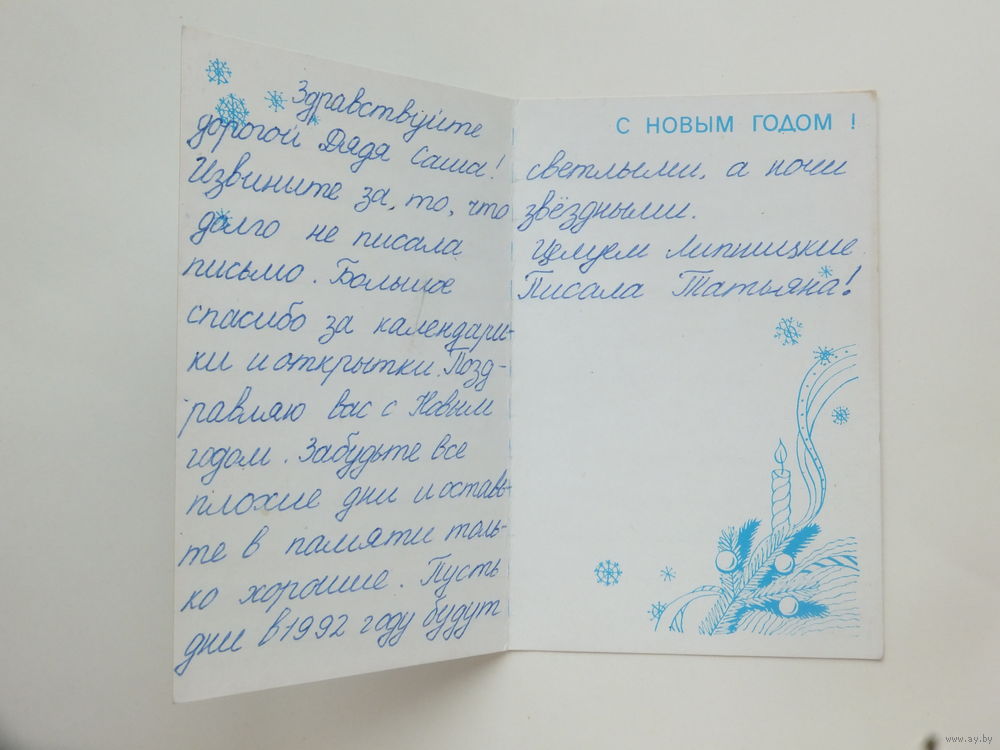 Здравствуйте
дорогой Дядя Саша!
Извините за, то, что
долго не писала
письмо. Большое
спасибо за календари-
ки и открытки. Позд-
равляю вас с Новым
годом. Забудьте все
плохие дни и оставь-
те в памяти толь-
ко хорошие. Пусть
дни в 1992 году будут
С НОВЫМ ГОДОМ !
светлыми, а ночи
звёздными.
Целуем Липницкие
Писала Татьяна!
www.ay.by